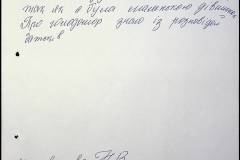 так як я була маленькою дівчинкою
Про голодомор знаю із розповідей
батьків
Н.В.